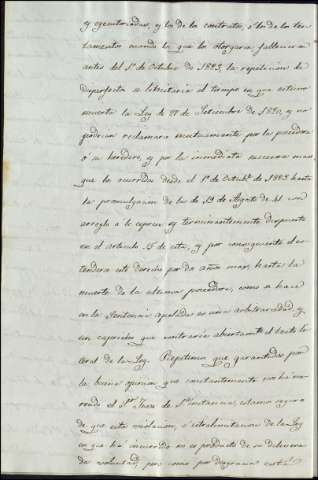 y ejecutoriadas, y la de los contratos, o la de los tes-
tamentos cuando los que los otorgaron fallecieron
antes del 1º de Octubre de 1823, la reposicion de
desperfectos se libertaria al tiempo en que estuvo
la Ley de 27 de Setiembre de 1820, y no
podrian reclamarse mutuamente por los poseedores
ó su heredero, y por los inmediatos sucesores mas
que los ocurridos desde el 1º de Octubre de 1823 hasta
la promulgacion de la de 19 de Agosto de 41 con
arreglo á lo espresa y terminantemente dispuesto
en el articulo 15 de esta, y por consiguiente el es-
tender este derecho por dos años mas, hasta la
muerte de la ultima poseedora, como se hace
en la Sentencia apelada es una arbitrariedad, y
un capricho que contraria abiertamente el testo li-
teral de la Ley. Repetimos que garantidos por
la buena opinion que constantemente nos ha me-
recido el Sr. Juez de 1ª instancia, estamos seguros
de que esta violacion, ó estralimitacion de la Ley
en que ha incurrido no es producto de su delibera-
da voluntad, pero como por desgracia está